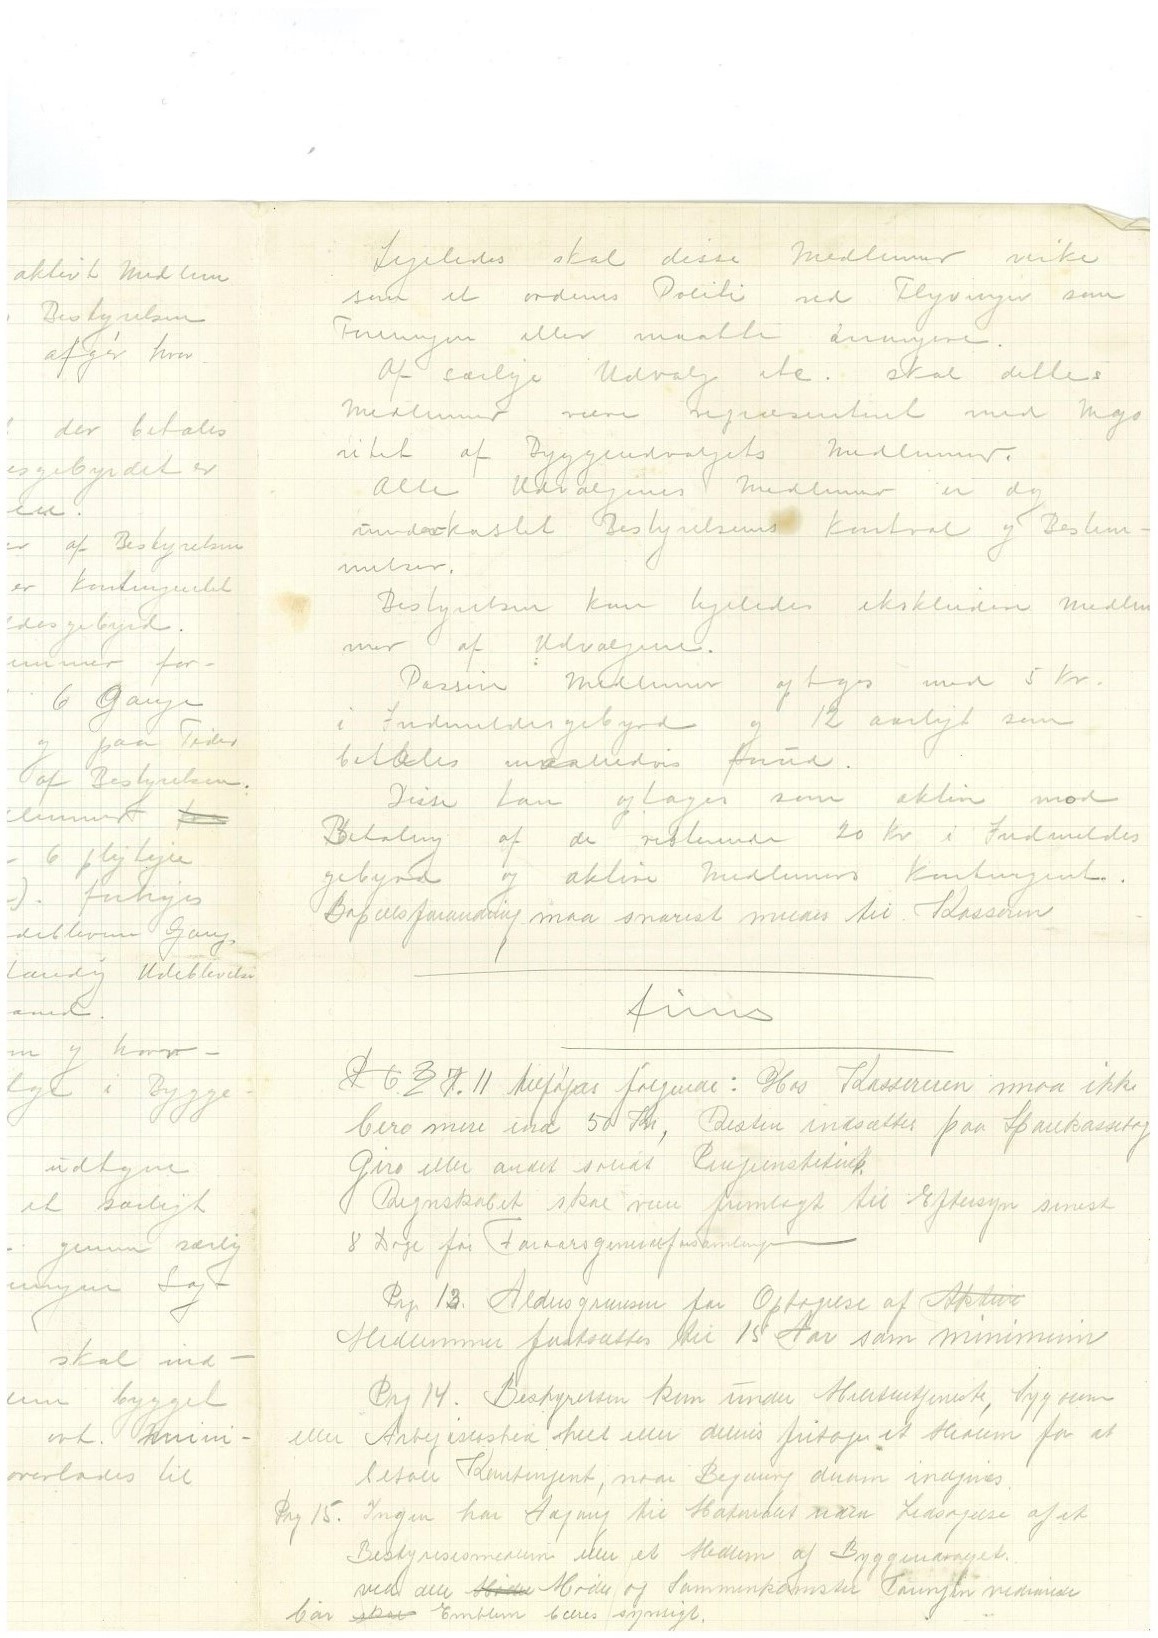 aktivt Medlem
Bestyrelsen
afgør hvor
der betales
esgebyrdet er
en.
er af Bestyrelsen
er Kontingentet
ldesgebyrd.
emmer for-
6 Gange
og paa Tider
af Bestyrelsen.
lemmer
- 6 pligtige
-). forhøjes
udeblevne Gang,
Udeblivelse
aned.
m og hvor-
i Bygge-
udtyve
et særligt
- gennem særlig
ningen Sag-
skal ind-
em bygget
evt. mini-
overlades til
Ligeledes skal disse Medlemmer virke
som et ordens Politi ved Flyvninger som
Foreningen eller maatte arrangere.
Af særlige Udvalg etc. skal dette
Medlemmer være repræsenteret med Majo
ritet af Byggeudvalgets Medlemmer.
Alle Udvalgenes Medlemmer er dog
underkastet Bestyrelsens Kontrol og Bestem-
melser.
Bestyrelsen kan ligeledes ekskludere Medlem
mer af Udvalgene.
Passive Medlemmer optages med 5 Kr.
i Indmeldesgebyrd og 12 aarligt som
betales maanedsvis forud.
Disse kan optages som aktive mod
Betaling af de resterende 20 Kr i Indmeldes
gebyrd og aktive Medlemmers Kontingent.
Bopælsforandring maa snarest meldes til Kasseren
finis
11 tilføjes følgende: Hos Kassereren maa ikke
bero mere end 50 Kr, Resten indsættes paa Sparkassebog
Giro eller andet solidt Pengeinstitut.
Regnskabet skal være fremlagt til Eftersyn senest
8 Dage før Foraarsgeneralforsamlingen
Prg. 13. Aldersgrænsen for Optagelse af Aktive
Medlemmer fastsættes til 15 Aar som minimum
Prg 14. Bestyrelsen kan under Militærtjeneste, Sygdom
eller Arbejdsløshed helt eller delvis fritage et Medlem for at
betale Kontingent, naar Begæring derom indgives.
Prg 15. Ingen har Adgang til Materialet uden Ledsagelse af et
Bestyrelsesmedlem eller et Medlem af Byggeudvalget.
ved alle Møder og Sammenkomster Foreningen vedrørende
bør skal Emblem bæres synligt.